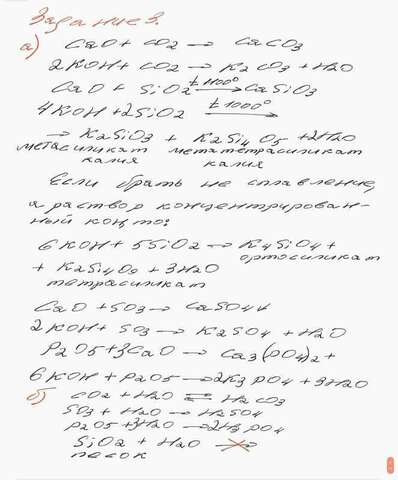 Задание 3.
а) CaO + CO2 → CaCO3
2KOH + CO2 → K2CO3 + H2O
CaO + SiO2 t 1100° → CaSiO3
4KOH + 2SiO2 t 1000° →
→ K2SiO3 + K2Si4O5 + 2H2O
метасиликат метатетрасиликат
калия калия
Если брать не сплавление,
а раствор концентрирован-
ный КОН, то:
6KOH + 5SiO2 → K4SiO4 +
ортосиликат
+ K2Si4O9 + 3H2O
тетрасиликат
CaO + SO3 → CaSO4↓
2KOH + SO3 → K2SO4 + H2O
P2O5 + 3CaO → Ca3(PO4)2↓
6KOH + P2O5 → 2K3PO4 + 3H2O
б) CO2 + H2O ⇄ H2CO3
SO3 + H2O → H2SO4
P2O5 + 3H2O → 2H3PO4
SiO2 + H2O ↛
песок